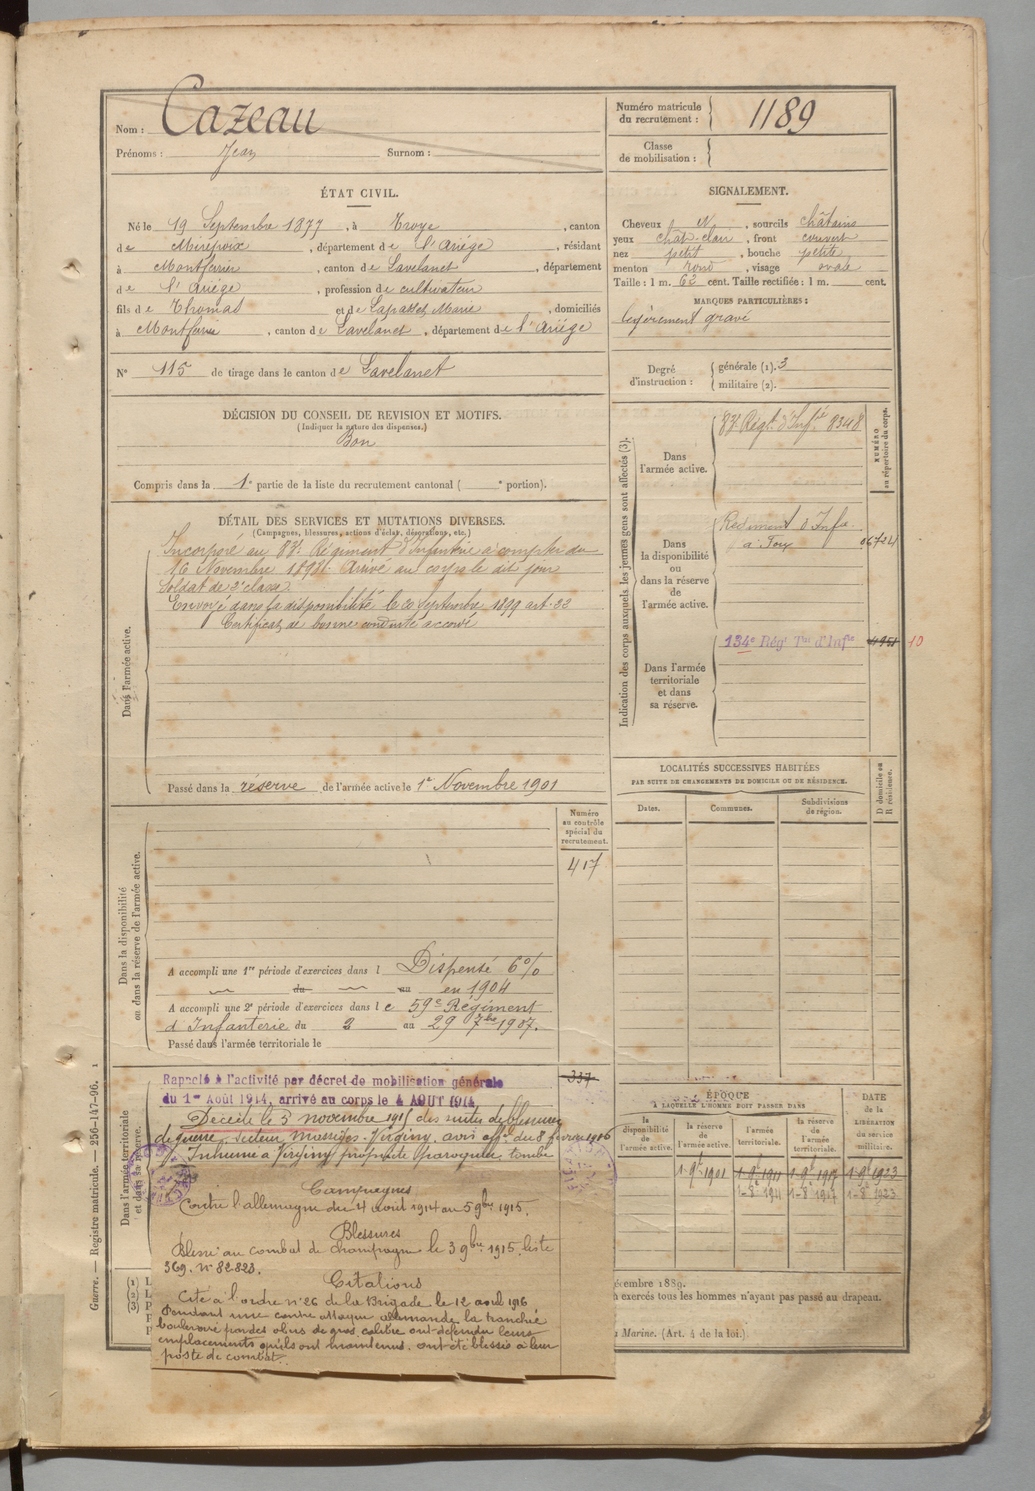 Nom : Cazeau
Prénoms : Jean Surnom :
Numéro matricule du recrutement : 1189
Classe de mobilisation :
ÉTAT CIVIL.
Né le 19 Septembre 1877, à Troye, canton
de Mirepoix, département de l'Ariége, résidant
à Montferrier, canton de Lavelanet, département
de l'Ariége, profession de cultivateur
fils de Thomas et de Marie, domiciliés
à Montferrier, canton de Lavelanet, département de l'Ariége
N° 115 de tirage dans le canton de Lavelanet
SIGNALEMENT.
Cheveux N, sourcils châtains
yeux chât. clair, front couvert
nez petit, bouche petite
menton rond, visage ovale
Taille : 1 m. 62 cent. Taille rectifiée : 1 m. cent.
MARQUES PARTICULIÈRES :
légèrement gravé
Degré d'instruction : générale (1). 3
militaire (2).
DÉCISION DU CONSEIL DE REVISION ET MOTIFS.
(Indiquer la nature des dispenses.)
Bon
Compris dans la 1e partie de la liste du recrutement cantonal ( e portion).
DÉTAIL DES SERVICES ET MUTATIONS DIVERSES.
(Campagnes, blessures, actions d'éclat, décorations, etc.)
Dans l'armée active.
Incorporé au 83e Régiment d'Infanterie à compter du
16 Novembre 1898. Arrivé au corps le dit jour
Soldat de 2e classe.
Envoyé dans la disponibilité le 20 Septembre 1899 art. 22
Certificat de bonne conduite accordé
Passé dans la réserve de l'armée active le 1er Novembre 1901
Indication des corps auxquels les jeunes gens sont affectés (3).
NUMÉRO au répertoire du corps.
Dans l'armée active.
83e Régt. d'Infie 8348
Dans la disponibilité ou dans la réserve de l'armée active.
Régiment d'Infie
à Foix 06724
Dans l'armée territoriale et dans sa réserve.
134e Régt Tal d'Infie 10
LOCALITÉS SUCCESSIVES HABITÉES
PAR SUITE DE CHANGEMENTS DE DOMICILE OU DE RÉSIDENCE.
Dates. Communes. Subdivisions de région. D domicile ou R résidence.
Dans la disponibilité ou dans la réserve de l'armée active.
Numéro au contrôle spécial du recrutement.
417
A accompli une 1re période d'exercices dans l Dispensé 6%
du au en 1904
A accompli une 2e période d'exercices dans le 59e Régiment
d'Infanterie du 2 au 29 7bre 1907.
Passé dans l'armée territoriale le
Dans l'armée territoriale et dans sa réserve.
Rappelé à l'activité par décret de mobilisation générale
du 1er Août 1914, arrivé au corps le 4 AOUT 1914
337
Décédé le 3 novembre 1915 des suites de blessures
de guerre, secteur Massiges-Virginy, avis offel du 8 février 1916
Inhumé à Virginy propriété tombe
Campagnes
Contre l'allemagne du 4 août 1914 au 5 9bre 1915.
Blessures
Blessé au combat de champagne le 3 9bre 1915. liste
369. n° 82823.
Citations
Cité à l'ordre n° 26 de la Brigade le 12 avril 1916
Pendant une contre attaque allemande la tranchée
bouleversée par des obus de gros calibre ont défendu leurs
emplacements qu'ils ont maintenus. ont été blessés à leur
poste de combat.
ÉPOQUE
A LAQUELLE L'HOMME DOIT PASSER DANS
la disponibilité de l'armée active. la réserve de l'armée active. l'armée territoriale. la réserve de l'armée territoriale.
DATE de la LIBÉRATION du service militaire.
1-9bre 1901 1-9bre 1911 1-9bre 1917 1-9bre 1923
1-8 1911 1-8 1917 1-8 1923
écembre 1889.
n exercés tous les hommes n'ayant pas passé au drapeau.
a Marine. (Art. 4 de la loi.)
(1)
(2)
(3)
Guerre. — Registre matricule. — 256-147-96. 1